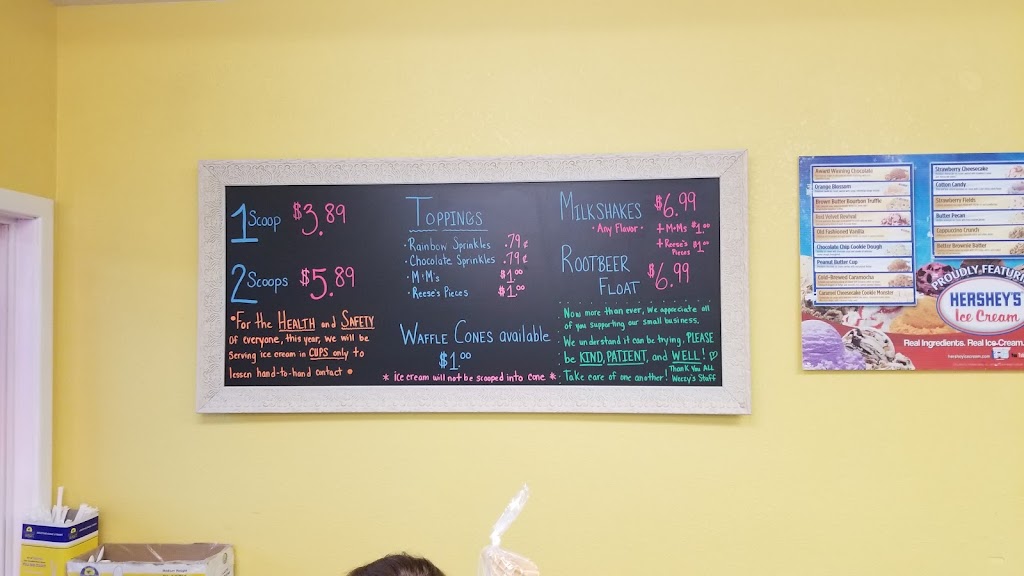 1 Scoop $3.89
2 Scoops $5.89
•For the HEALTH and SAFETY
of everyone, this year, we will be
serving ice cream in CUPS only to
lessen hand-to-hand contact •
TOPPINGS
• Rainbow Sprinkles .79¢
• Chocolate Sprinkles .79¢
• M•M's $1.00
• Reese's Pieces $1.00
WAFFLE CONES available
$1.00
* ice cream will not be scooped into cone *
MILKSHAKES $6.99
• Any Flavor •
+ M•Ms $1.00
+ Reese's Pieces $1.00
ROOTBEER
FLOAT $6.99
Now more than ever, we appreciate all
of you supporting our small business.
We understand it can be trying. PLEASE
be KIND, PATIENT, and WELL!
Take care of one another!
Thank You ALL
Award Winning Chocolate
Orange Blossom
Brown Butter Bourbon Truffle
Red Velvet Revival
Old Fashioned Vanilla
Chocolate Chip Cookie Dough
Peanut Butter Cup
Cold-Brewed Caramocha
Caramel Cheesecake Cookie Monster
Strawberry Cheesecake
Cotton Candy
Strawberry Fields
Butter Pecan
Cappuccino Crunch
Better Brownie Batter
PROUDLY FEATUR
HERSHEY'S
Ice Cream
Real Ingredients. Real Ice Cream.